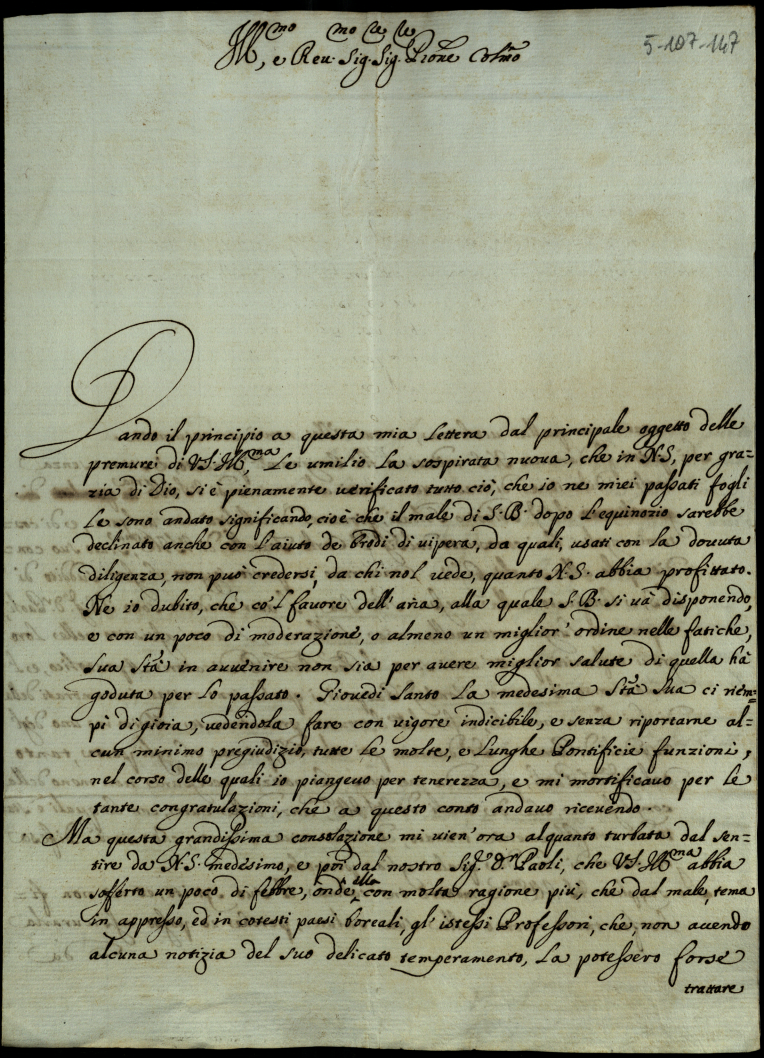 Ill.mo, e Rev.mo Sig.re Sig.re Prone Colmo
5-107-147
Dando il principio a questa mia lettera dal principale oggetto delle
premure di VS. Ill.ma, Le umilio la sospirata nuova, che in N.S, per gra=
zia di Dio, si è pienamente verificato tutto ciò, che io ne miei passati fogli
Le sono andato significando, cioè che il male di S.B. dopo l'equinozio sarebbe
declinato anche con l'aiuto de Brodi di vipera, da quali, usati con la dovuta
diligenza, non può credersi, da chi nol vede, quanto N.S. abbia profittato.
Ne io dubito, che co'l favore dell'aria, alla quale S.B. si và disponendo,
e con un poco di moderazione, o almeno un miglior' ordine nelle fatiche,
Sua Stà in avvenire non sia per avere miglior salute di quella hà
goduta per lo passato. Giovedi Santo la medesima Stà Sua ci riem=
pì di gioia, vedendola fare con vigore indicibile, e senza riportarne al=
cun minimo pregiudizio, tutte le molte, e lunghe Pontificie funzioni,
nel corso delle quali io piangevo per tenerezza, e mi mortificavo per le
tante congratulazioni, che a questo conto andavo ricevendo.
Ma questa grandissima consolazione mi vien'ora alquanto turbata dal sen=
tire da N.S. medesimo, e poi dal nostro Sig.r D.r Paoli, che VS. Ill.ma abbia
sofferto un poco di febbre, onde ella con molta ragione più, che dal male, tema
in appresso, ed in cotesti paesi boreali, gl'istessi Professori, che, non avendo
alcuna notizia del suo delicato temperamento, La potessero forse
trattare